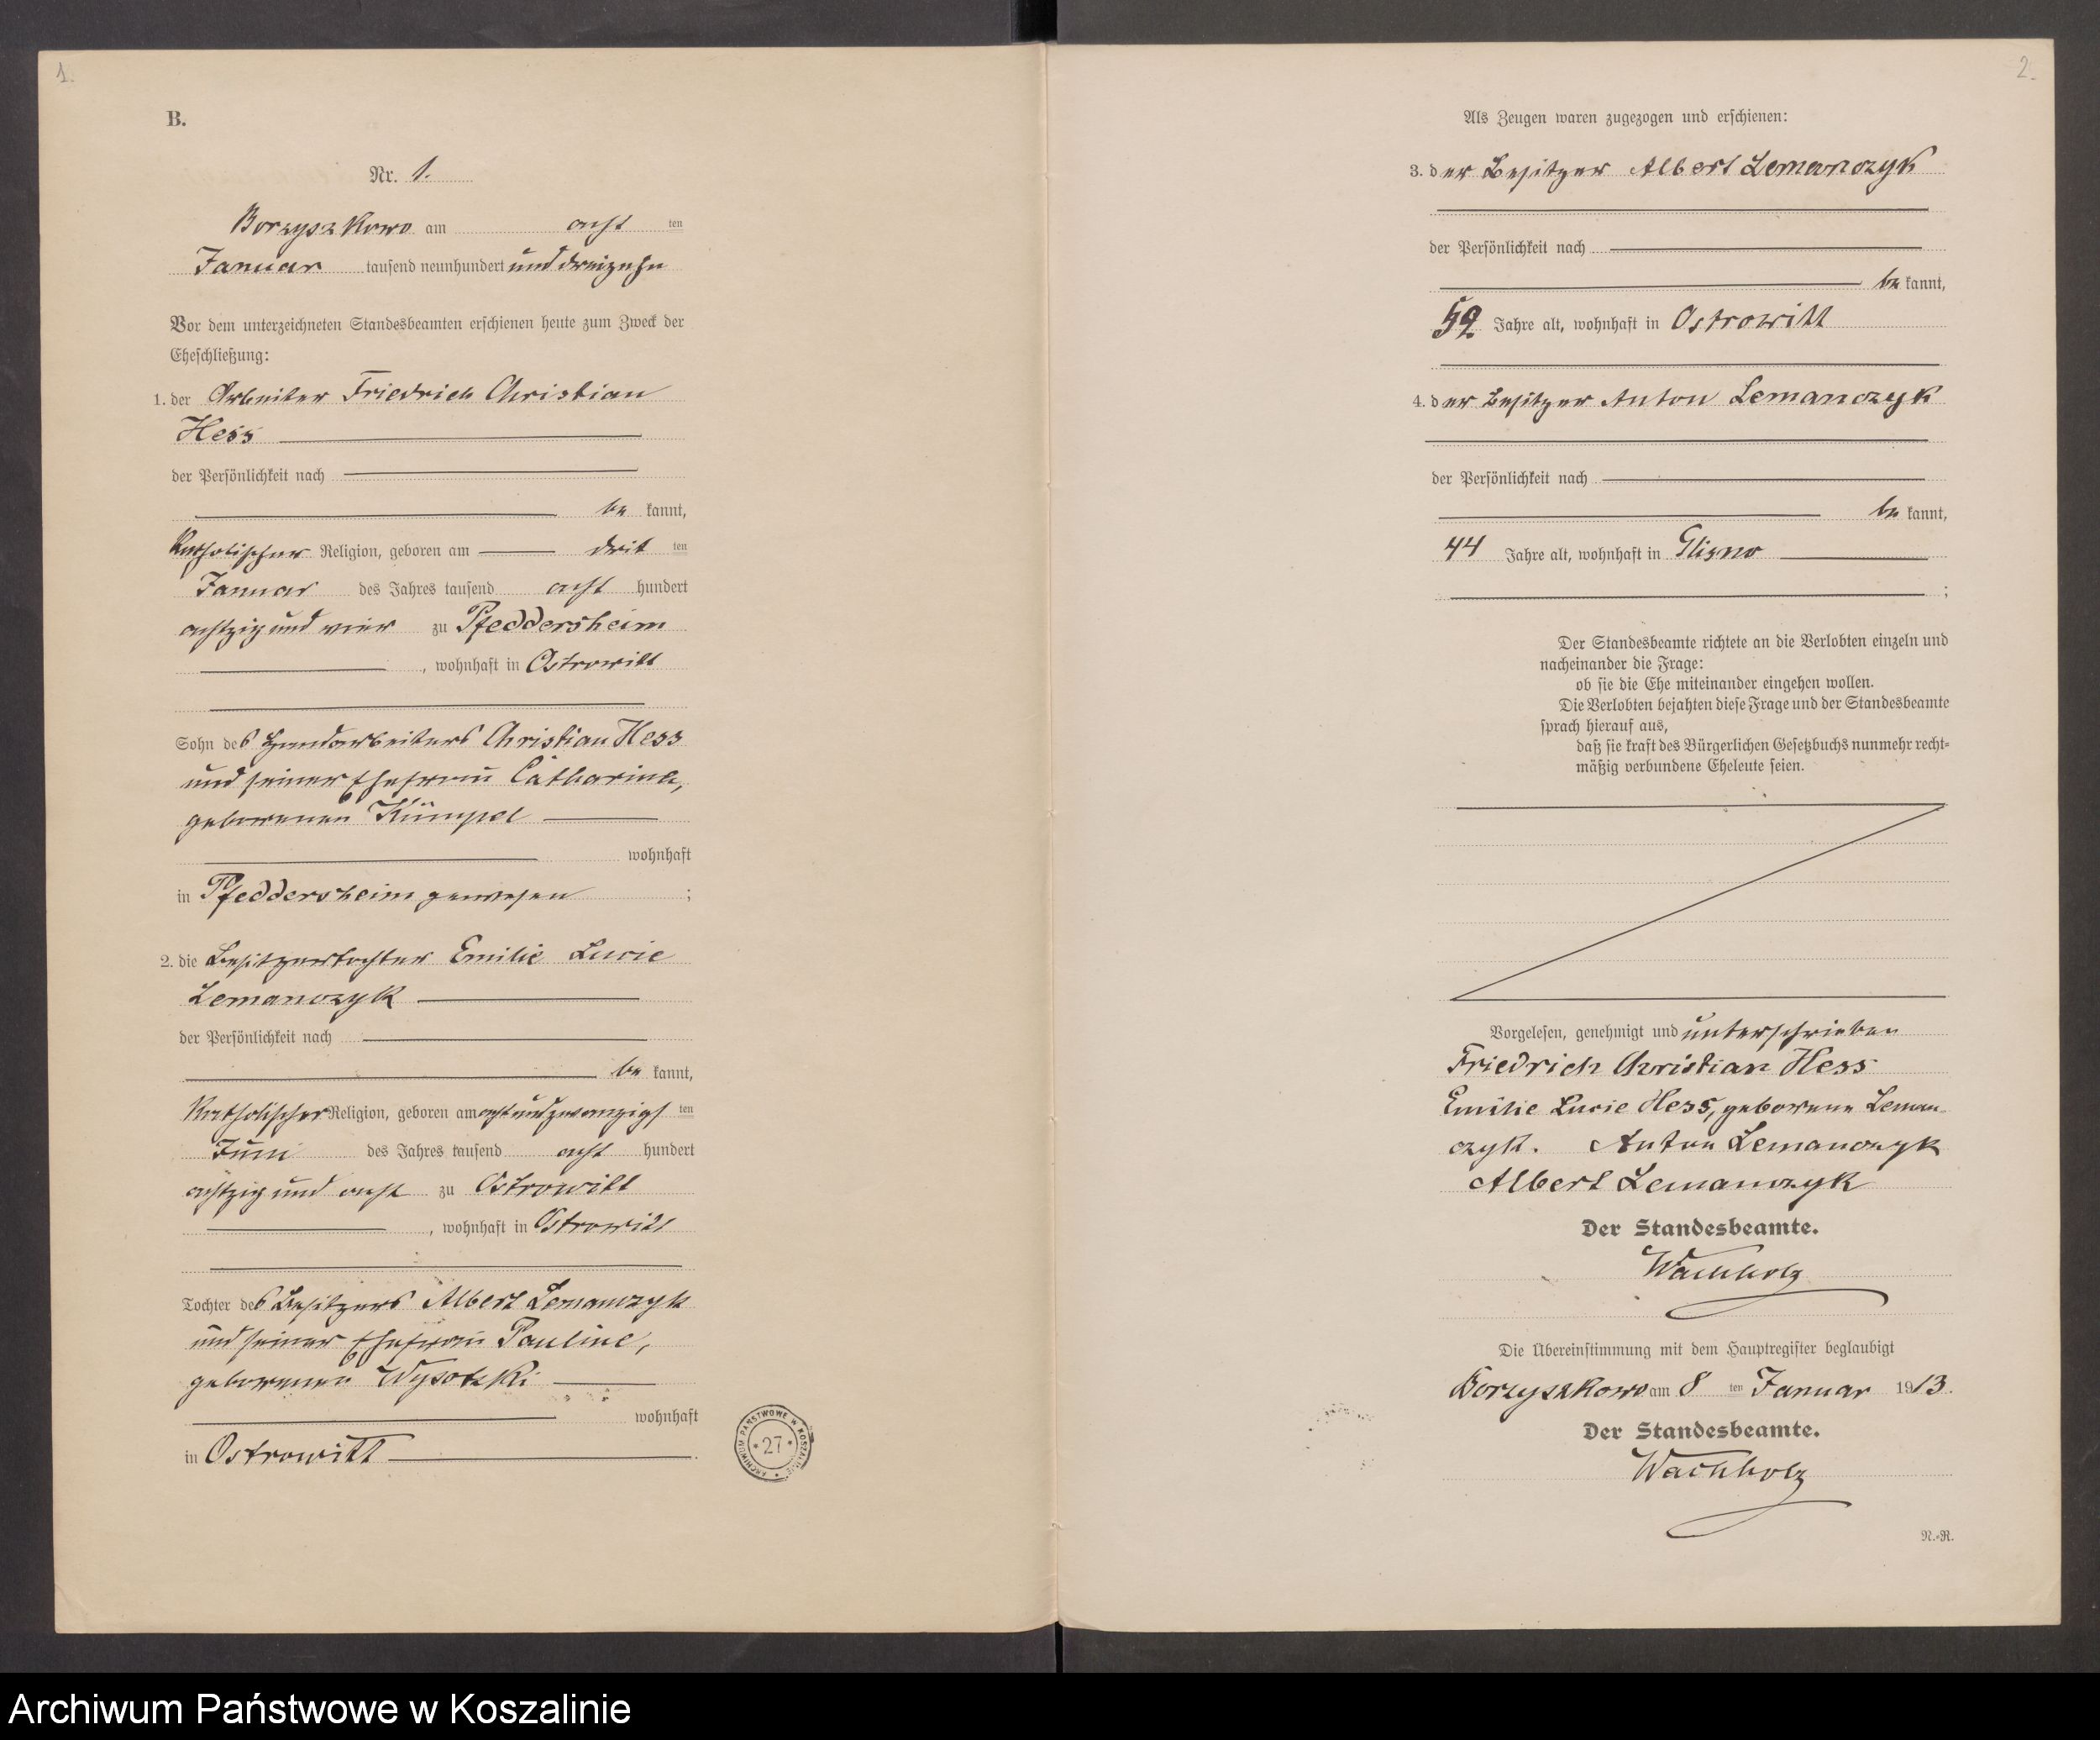 1.
B.
Nr. 1.
Borzyszkowo am acht ten
Januar tausend neunhundert und dreizehn
Vor dem unterzeichneten Standesbeamten erschienen heute zum Zweck der
Eheschließung:
1. der Arbeiter Friedrich Christian
Hess
der Persönlichkeit nach
be kannt,
katholischer Religion, geboren am drit ten
Januar des Jahres tausend acht hundert
achtzig und vier zu Pfeddersheim
, wohnhaft in Ostrowitt
Sohn des Handarbeiters Christian Hess
und seiner Ehefrau Catharina,
geborenen Kümpel
wohnhaft
in Pfeddersheim gewesen ;
2. die Besitzertochter Emilie Lucie
Lemanczyk
der Persönlichkeit nach
be kannt,
katholischer Religion, geboren am achtundzwanzigs ten
Juni des Jahres tausend acht hundert
achtzig und acht zu Ostrowitt
, wohnhaft in Ostrowitt
Tochter des Besitzers Albert Lemanczyk
und seiner Ehefrau Pauline,
geborenen Wysotzki
wohnhaft
in Ostrowitt .
ARCHIWUM PAŃSTWOWE W KOSZALINIE
* 27 *
2.
Als Zeugen waren zugezogen und erschienen:
3. der Besitzer Albert Lemanczyk
der Persönlichkeit nach
be kannt,
59 Jahre alt, wohnhaft in Ostrowitt
4. der Besitzer Anton Lemanczyk
der Persönlichkeit nach
be kannt,
44 Jahre alt, wohnhaft in Glisno
;
Der Standesbeamte richtete an die Verlobten einzeln und
nacheinander die Frage:
ob sie die Ehe miteinander eingehen wollen.
Die Verlobten bejahten diese Frage und der Standesbeamte
sprach hierauf aus,
daß sie kraft des Bürgerlichen Gesetzbuchs nunmehr recht-
mäßig verbundene Eheleute seien.
Vorgelesen, genehmigt und unterschrieben
Friedrich Christian Hess
Emilie Lucie Hess, geborene Leman-
czyk. Anton Lemanczyk
Albert Lemanczyk
Der Standesbeamte.
Wachholz
Die Übereinstimmung mit dem Hauptregister beglaubigt
Borzyszkowo am 8 ten Januar 1913.
Der Standesbeamte.
Wachholz
N.-R.
Archiwum Państwowe w Koszalinie